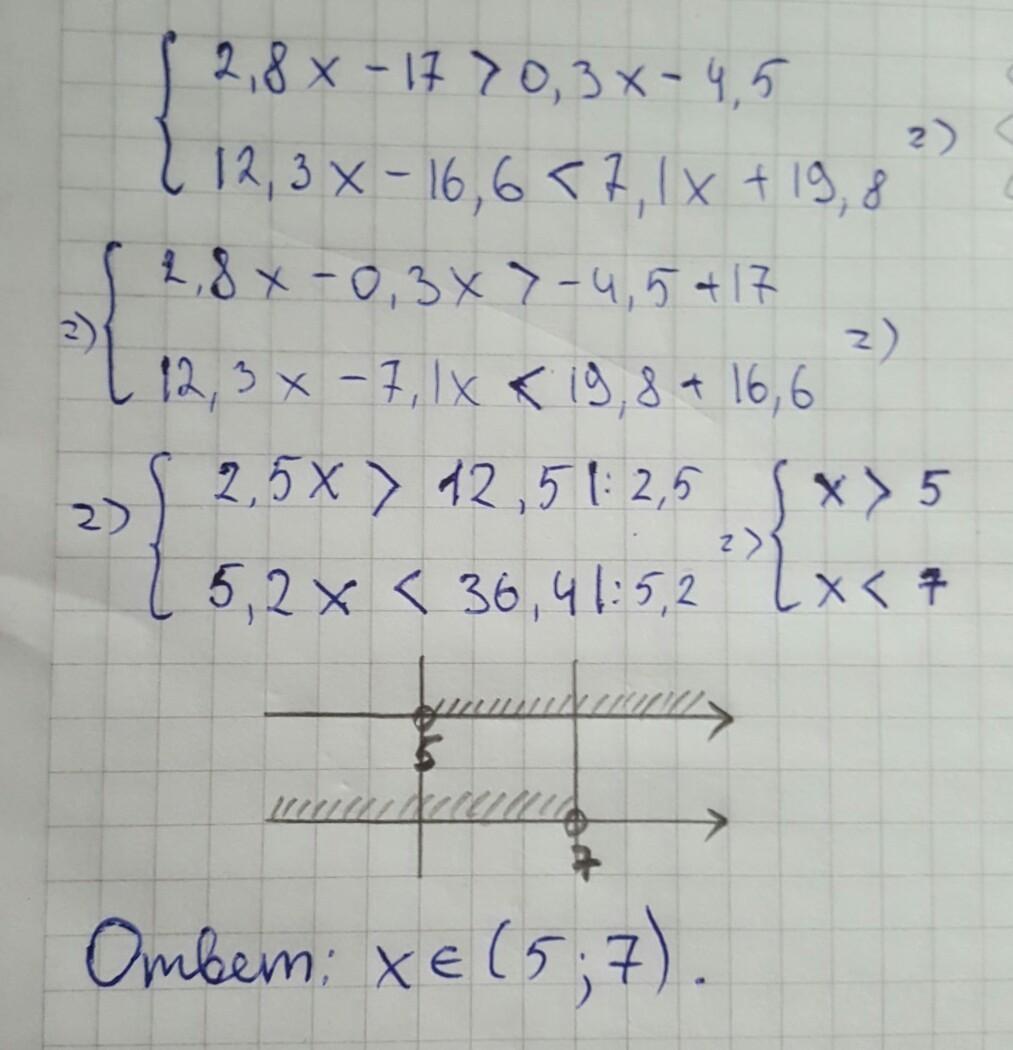 { 2,8x - 17 > 0,3x - 4,5
{ 12,3x - 16,6 < 7,1x + 19,8 =>
=> { 2,8x - 0,3x > -4,5 + 17
{ 12,3x - 7,1x < 19,8 + 16,6 =>
=> { 2,5x > 12,5 |: 2,5 => { x > 5
{ 5,2x < 36,4 |: 5,2 { x < 7
5
7
Ответ: x ∈ (5; 7).